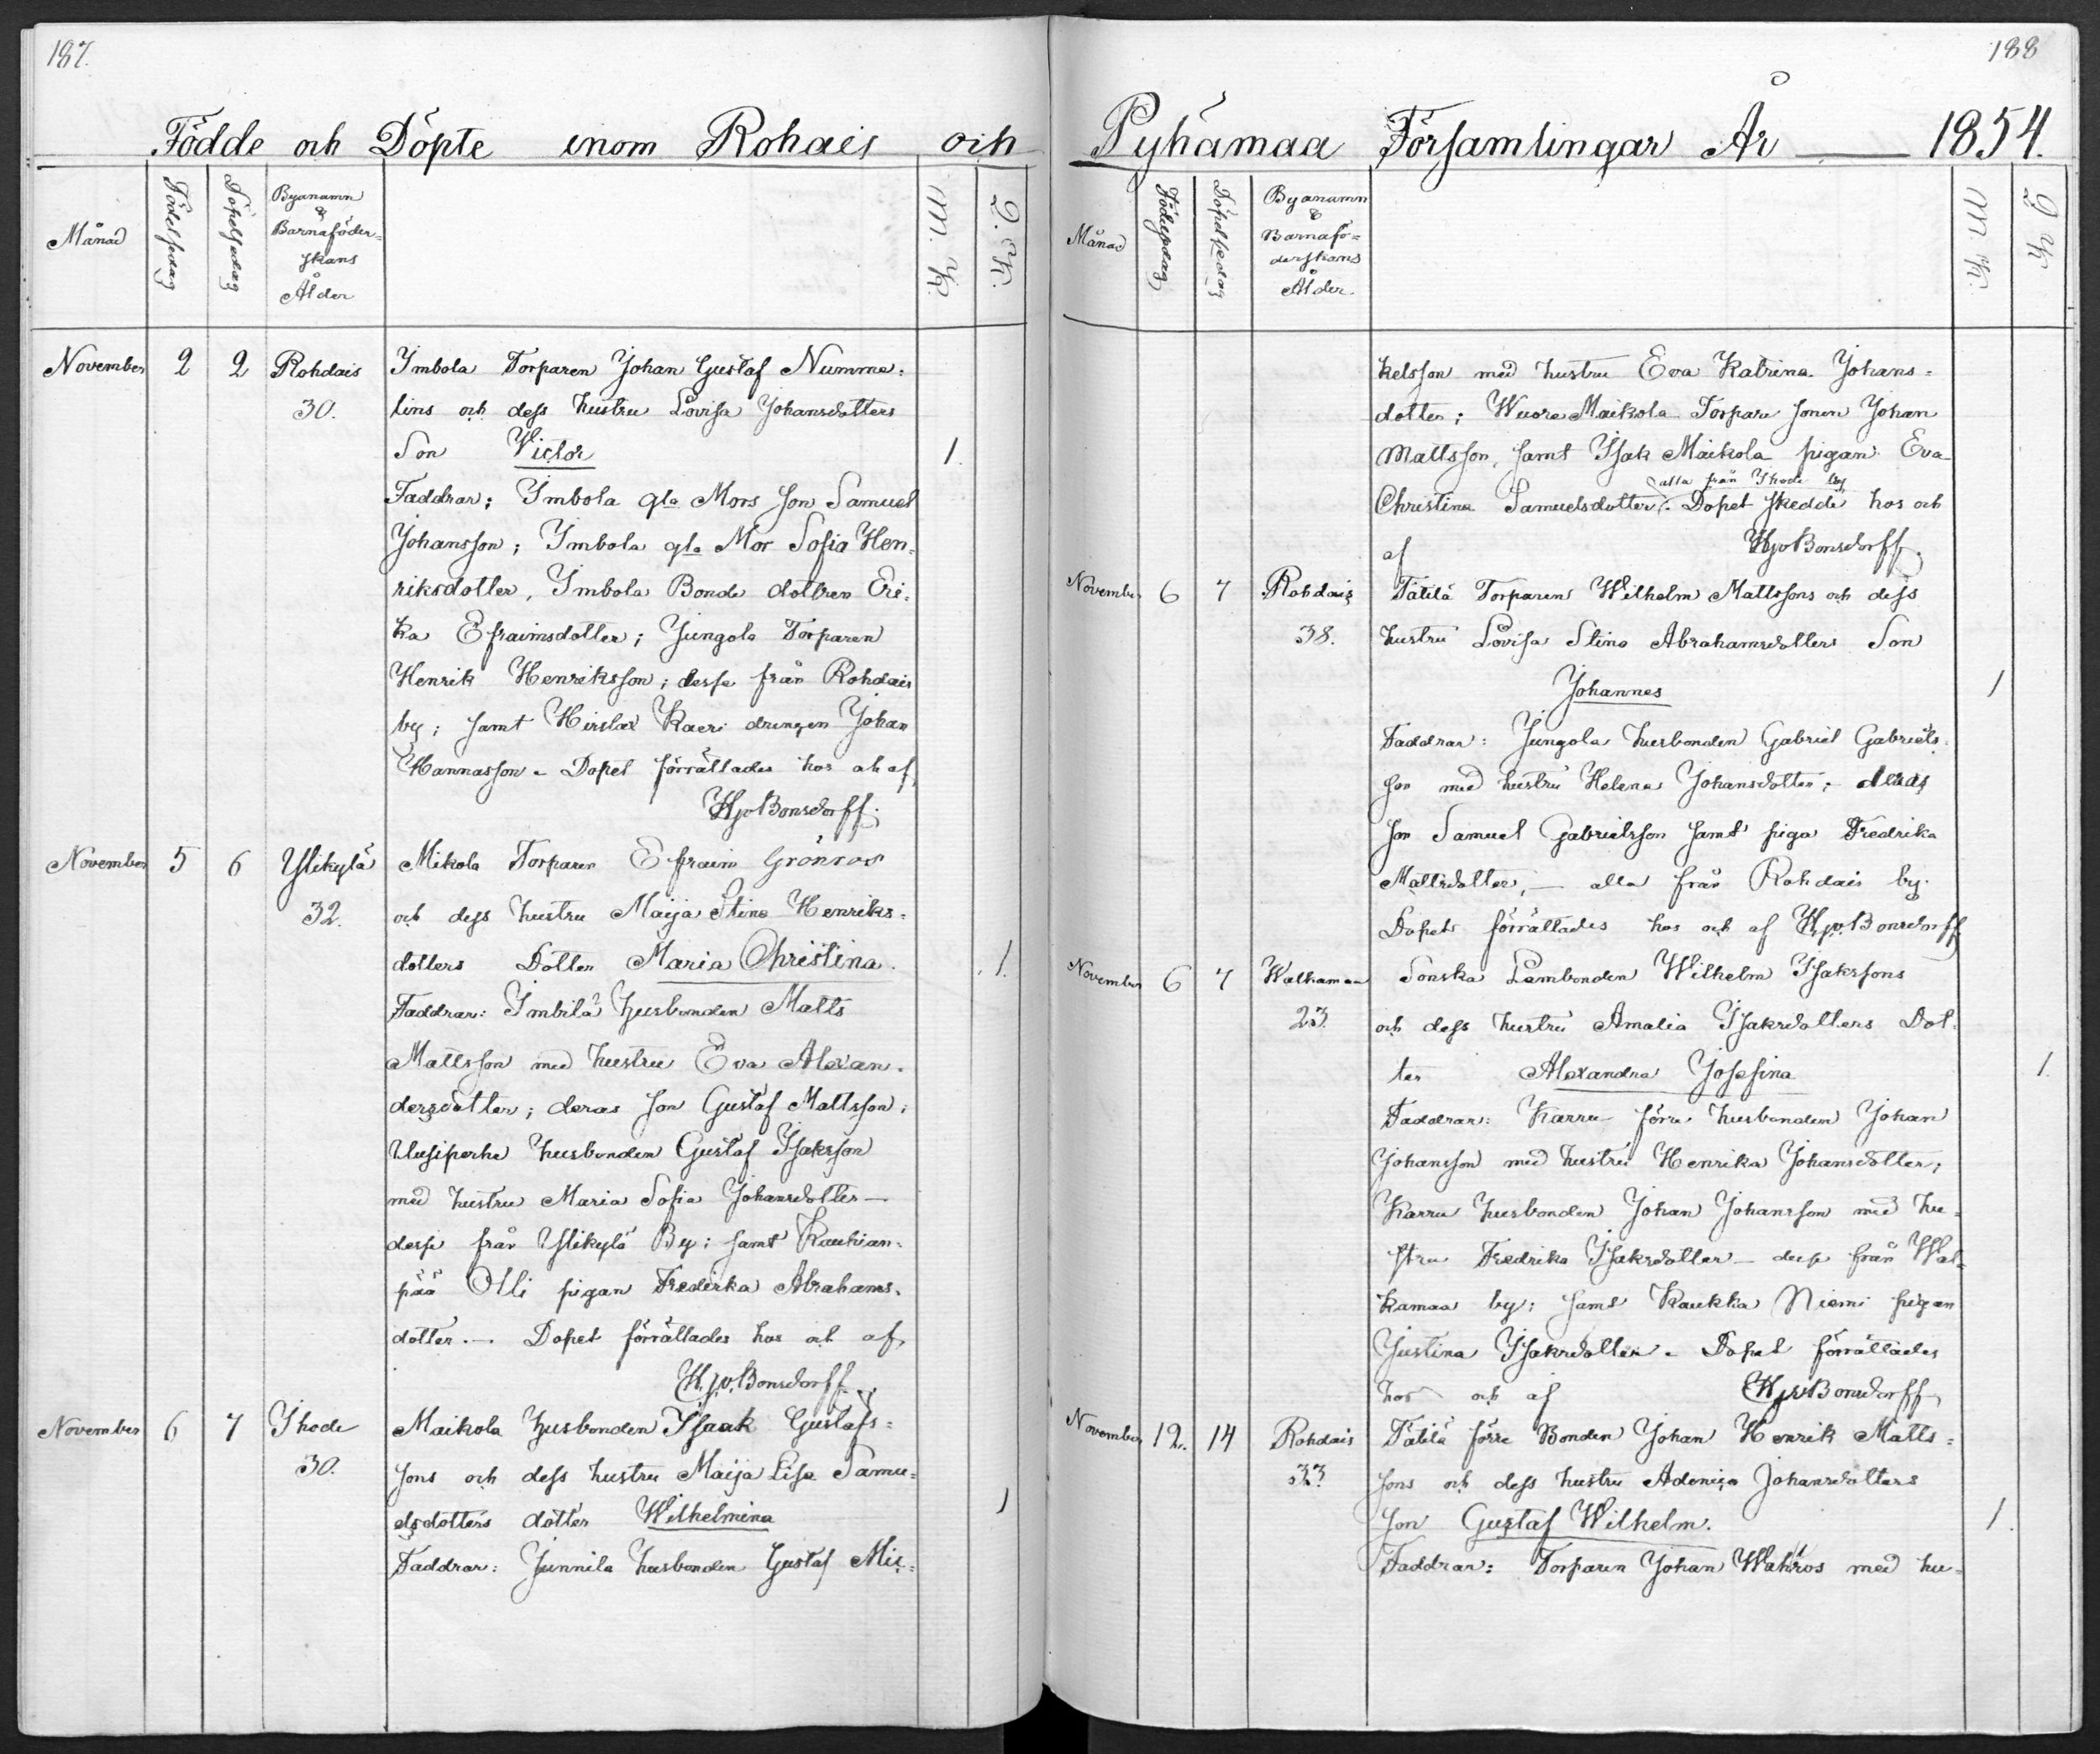 187.
Födde och Döpte inom Rohdais och
Månad
Födelsedag
Döpelsedag
Byanamn
&
Barnaföder-
skans
Ålder
M. K.
Q. K.
November 2 2 Rohdais Imbola Torparen Johan Gustaf Numme-
30. lins och dess hustru Lovisa Johansdotters
Son Victor 1.
Faddrar; Imbola gla Mors son Samuel
Johansson; Imbola gla Mor Sofia Hen-
riksdotter, Imbola Bonde dottren Eri-
ka Efraimsdotter; Jungola Torparen
Henrik Henriksson; desse från Rohdais
by; samt Hirslax Kaeri drengen Johan
Hannasson. Dopet förrättades hos och af
HjvBonsdorff.
November 5 6 Ylikylä Mikola Torparen Efraim Grönroos
32. och dess hustru Maija Stina Henriks-
dotters Dotter Maria Christina. 1.
Faddrar: Imbilä husbonden Matts
Mattsson med hustru Eva Alexan-
dersdotter; deras son Gustaf Mattsson;
Uusiperhe husbonden Gustaf Isaksson
med hustru Maria Sofia Johansdotter —
desse från Ylikylä By; samt Kauhian-
pää Olli pigan Fredrika Abrahams-
dotter. — Dopet förrättades hos och af
H.jv.Bonsdorff.
November 6 7 Ihode Maikola husbonden Isaak Gustafs-
30. sons och dess hustru Maija Lisa Samu-
elsdotters dotter Wilhelmina 1
Faddrar: Junnila husbonden Gustaf Mic-
188
Pyhämaa Församlingar År — 1854.
Månad
Födelsedag
Döpelsedag
Byanamn
&
Barnafö-
derskans
Ålder.
M. K.
Q K
kelsson med hustru Eva Katrina Johans-
dotter; Wuore Maikola Torpare sonen Johan
Mattsson, samt Isak Maikola pigan Eva
alla från Ihode by
Christina Samuelsdotter. Dopet skedde hos och
af HjvBonsdorff.
November 6 7 Rohdais Tätilä Torparen Wilhelm Mattssons och dess
38. hustru Lovisa Stina Abrahamsdotters Son
Johannes 1
Faddrar: Jungola husbonden Gabriel Gabriels-
son med hustru Helena Johansdotter; deras
son Samuel Gabrielsson samt piga Fredrika
Mattsdotter, — alla från Rohdais by.
Dopet förrättades hos och af H.jv.Bonsdorff
November 6 7 Walkamaa Sonska Lambonden Wilhelm Isakssons
23. och dess hustru Amalia Isaksdotters Dot-
ter Alexandra Josefina 1.
Faddrar: Karru förra husbonden Johan
Johansson med hustru Henrika Johansdotter;
Karru husbonden Johan Johansson med hu-
stru Fredrika Isaksdotter — desse från Wal-
kamaa by; samt Kauklia Niemi pigan
Justina Isaksdotter. Dopet förrättades
hos och af HjvBonsdorff
November 12. 14 Rohdais Tätilä förre Bonden Johan Henrik Matts-
33. sons och dess hustru Adoniça Johansdotters
son Gustaf Wilhelm. 1.
Faddrar: Torparen Johan Wahlros med hu-